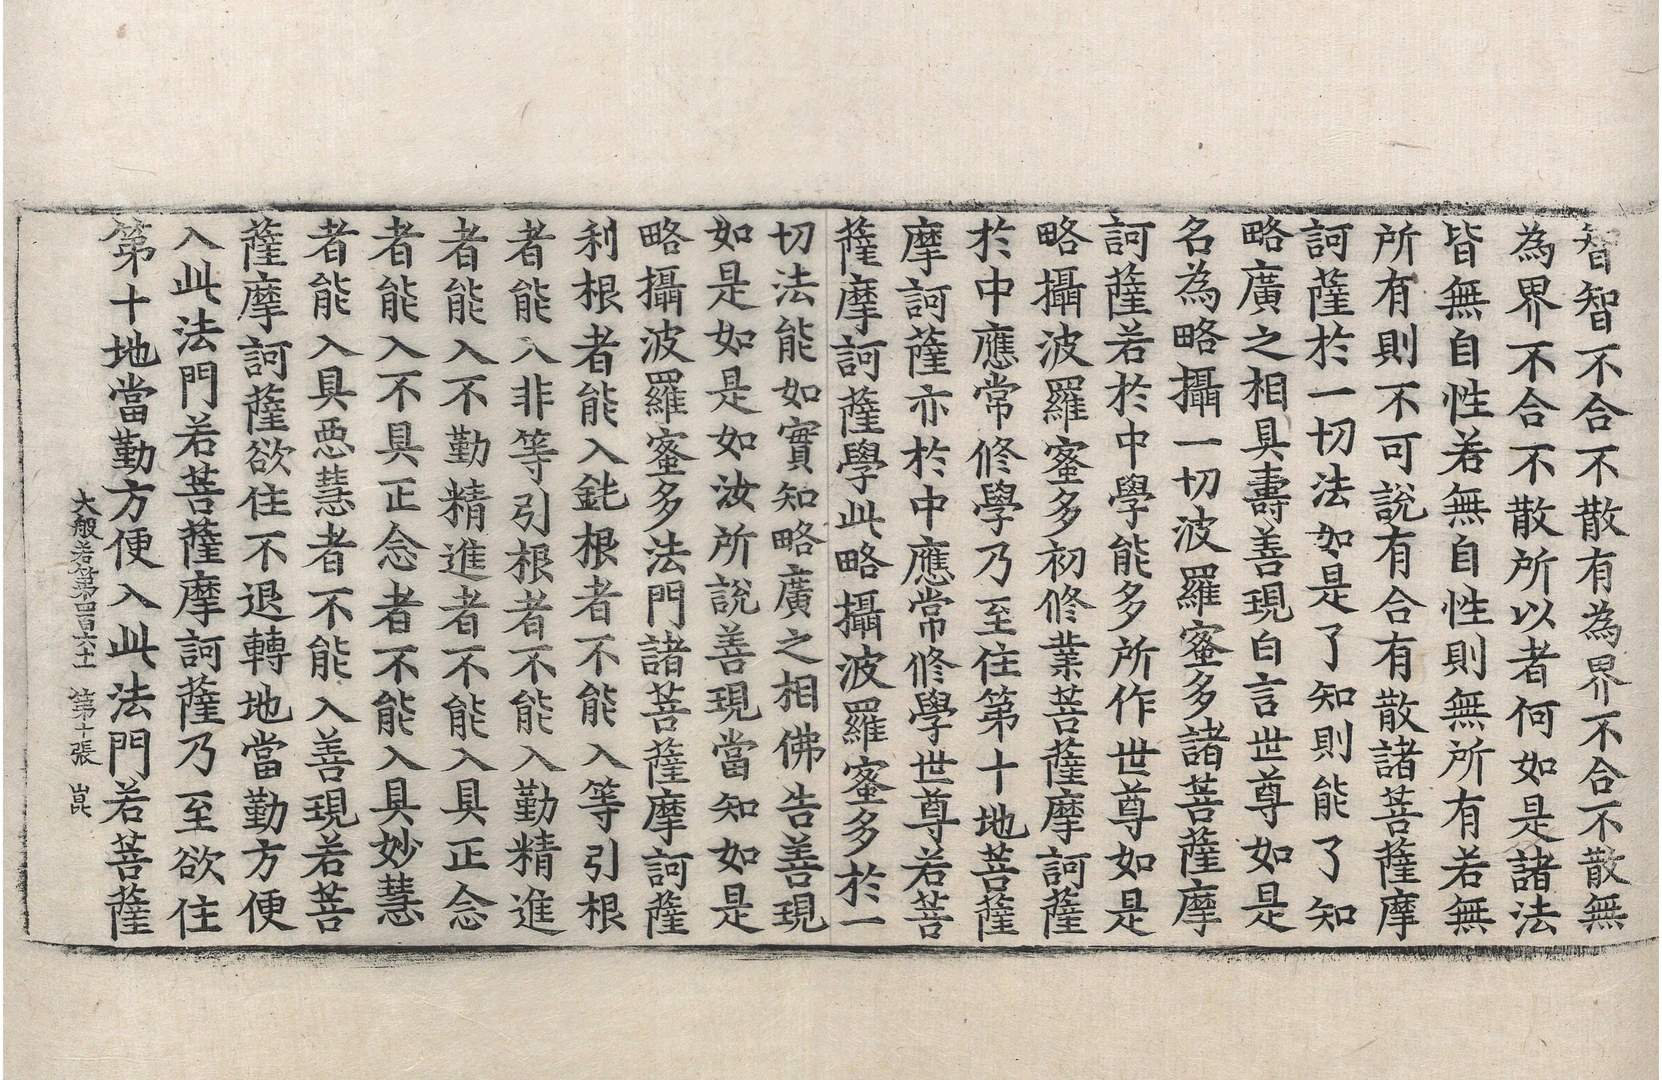 智智不合不散有為界不合不散無
為界不合不散所以者何如是諸法
皆無自性若無自性則無所有若無
所有則不可說有合有散諸菩薩摩
訶薩於一切法如是了知則能了知
略廣之相具壽善現白言世尊如是
名為略攝一切波羅蜜多諸菩薩摩
訶薩若於中學能多所作世尊如是
略攝波羅蜜多初修業菩薩摩訶薩
於中應常修學乃至住第十地菩薩
摩訶薩亦於中應常修學世尊若菩
薩摩訶薩學此略攝波羅蜜多於一
切法能如實知略廣之相佛告善現
如是如是如汝所說善現當知如是
略攝波羅蜜多法門諸菩薩摩訶薩
利根者能入鈍根者不能入等引根
者能入非等引根者不能入勤精進
者能入不勤精進者不能入具正念
者能入不具正念者不能入具妙慧
者能入具惡慧者不能入善現若菩
薩摩訶薩欲住不退轉地當勤方便
入此法門若菩薩摩訶薩乃至欲住
第十地當勤方便入此法門若菩薩
大般若第四百六十一 第十張 崑